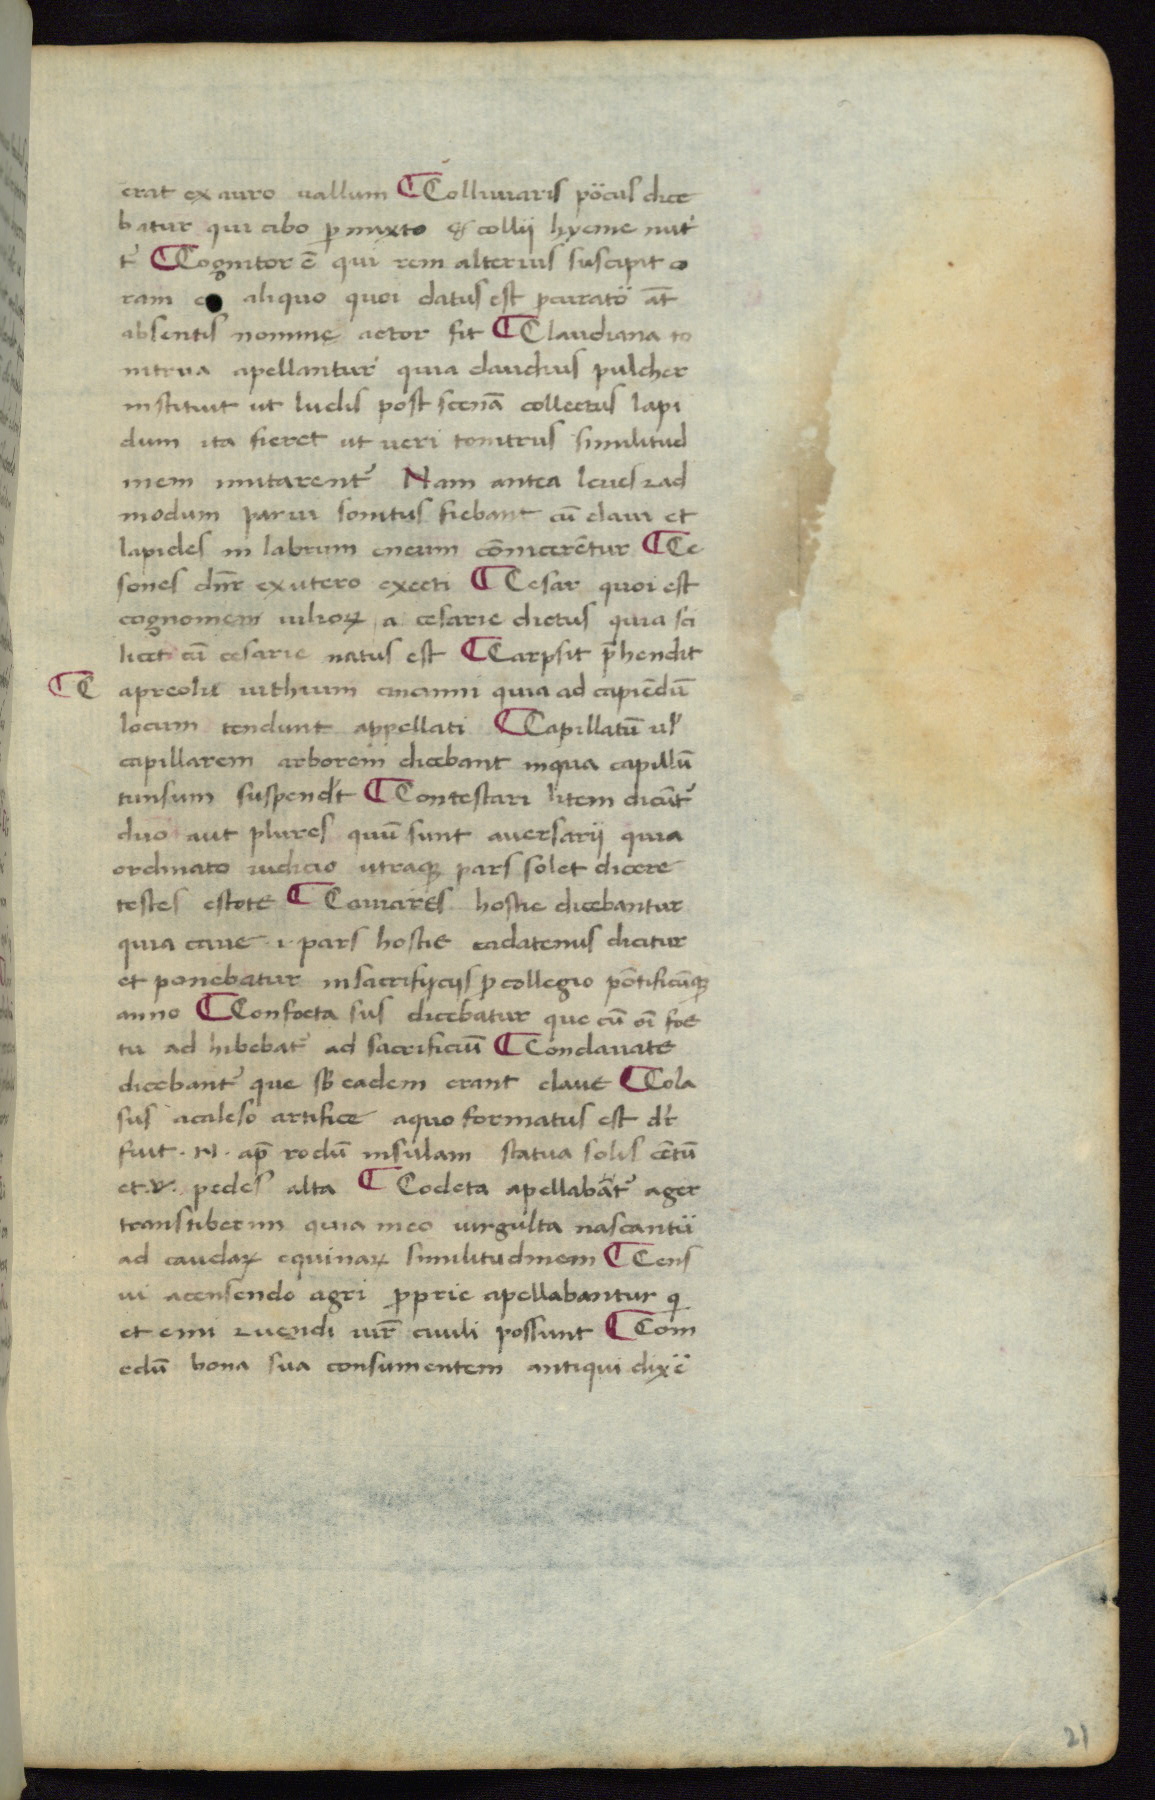 erat ex auro uallum ¶ Colluuiaris pöcus dice
batur qui cibo ꝑmixto & collij hyeme nut᷑
t᷑ ¶ Cognitor ē qui rem alterius suscipit co
ram eo aliquo quoi datus est ꝓcuratoͬ at̄
absentis nomine actor fit ¶ Claudiana to
nitrua apellantur quia claudius pulcher
instituit ut ludis post scenā collectus lapi
dum ita fieret ut ueri tonitrus similitud
inem imitarent᷑ Nam antea leues ⁊ ad
modum parui sonitus fiebant cū claui et
lapides in labrum eneum cōnicerētur ¶ Ce
sones dn̄r ex utero execti ¶ Cesar quoi est
cognomen iulioꝝ a cesarie dictus quia sci
licet cū cesarie natus est ¶ Carpsit p̄hendit
¶ C apreoli uithium cincinni quia ad capiēdū
locum tendunt appellati ¶ Capillatū ul᷑
capillarem arborem dicebant in qua capillū
tunsum suspend᷑t ¶ Contestari litem dicūt᷑
duo aut plures quū sunt auersarij quia
ordinato iudicio utraqꝫ pars solet dicere
testes estote ¶ Cauiares hostie dicebantur
quia caue .i. pars hostie cadatenus dicitur
et ponebatur in sacrifijcijs ꝓ collegio pōtificūqꝫ
anno ¶ Confoeta sus dicebatur que cū oī foe
tu ad hibebat᷑ ad sacrificiū ¶ Conclauate
dicebant᷑ que sb̄ eadem erant claue ¶ Cola
sus acaleso artifice a quo formatus est dr̄
fuit .N. ap̄ rodū insulam statua solis cētū
et .v. pedes alta ¶ Codeta apellabāt᷑ ager
transtiberim quia in eo uirgulta nascantu᷑
ad caudaꝝ equinaꝝ similitudinem ¶ Cens
ui acensendo agri ꝓprie apellabantur q̄
et emi ⁊ uendi iur̄ ciuili possunt ¶ Com
edū bona sua consumentem antiqui dixe᷑
21